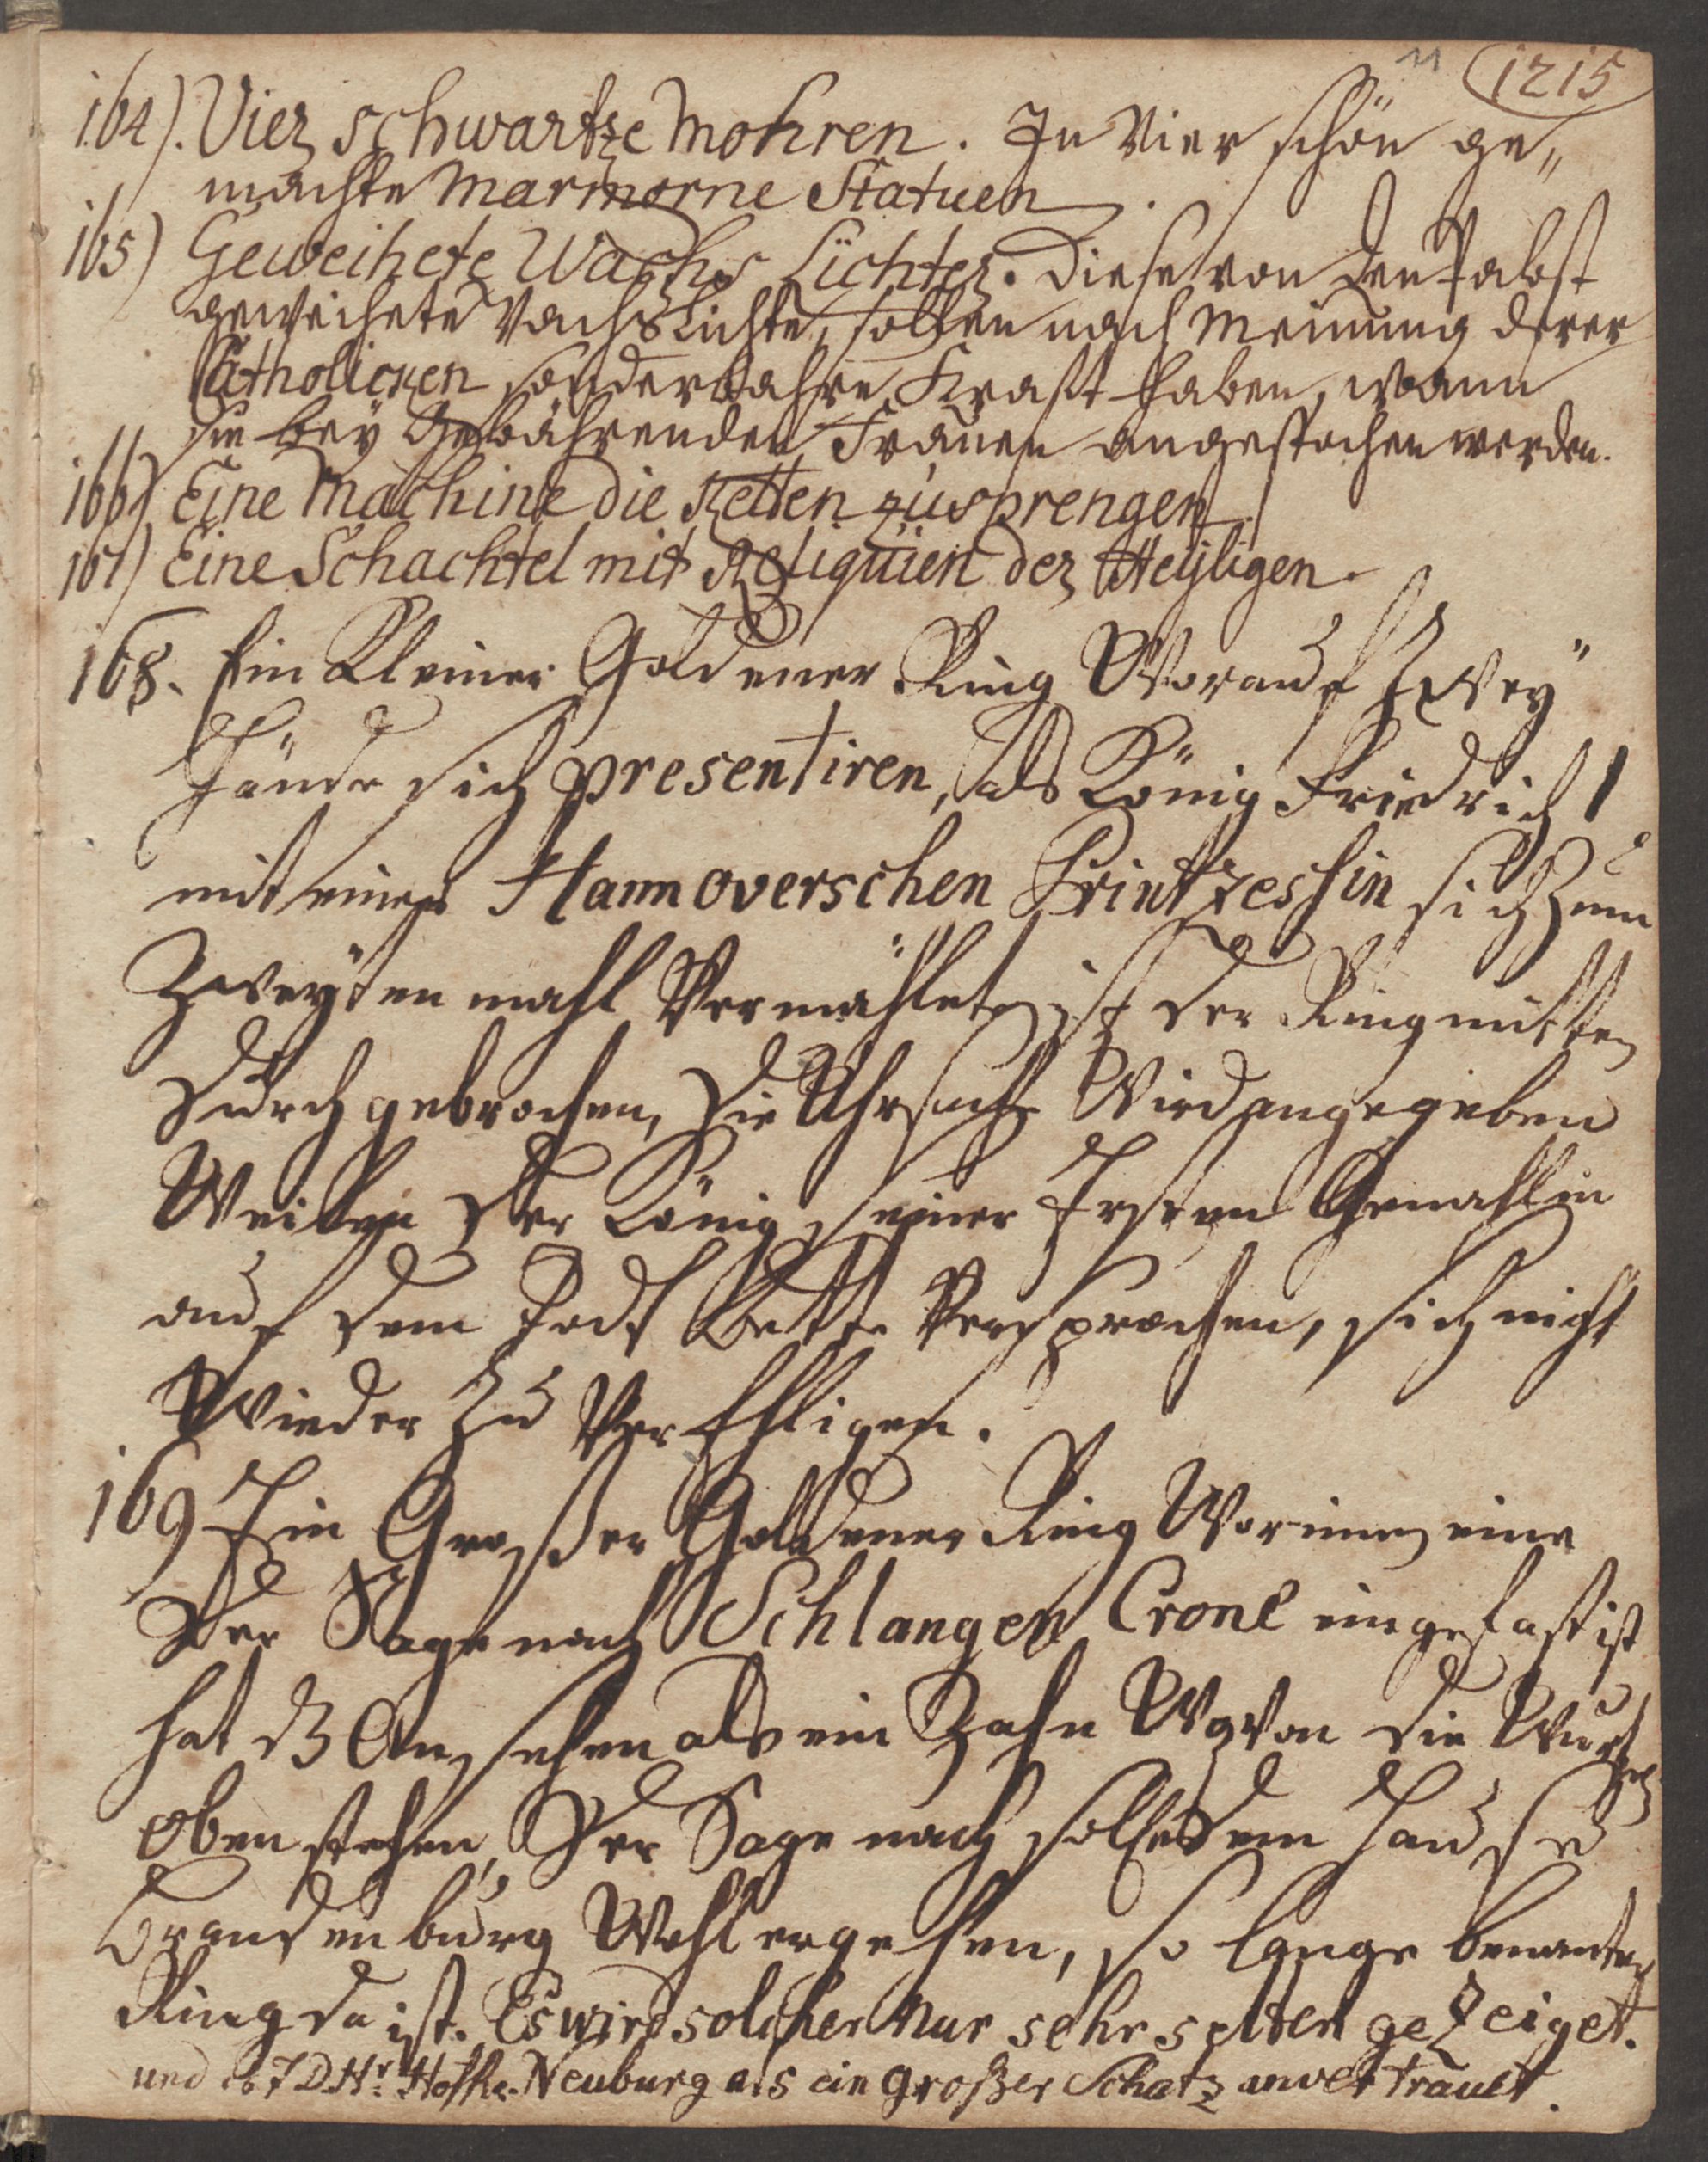 11 1215
164). Vier schwartze Mohren. In Vier schön ge„
machte Marmorne Statuen.
165) Geweihete Wachs Lichter. Diese von den Pabst
geweihete Wachs Lichte, sollen nach Meinung derer
Catholicken sonderbahre Krafft haben, wann
sie bey gebährenden Frauen angestochen werden.
166) Eine Machine die Ketten zu sprengen
167) Eine Schachtel mit Reliquien der Heyligen.
168. Ein Kleiner Goldener Ring Worauf Zwey
Hände sich presentiren, als König Friedrich 1
mit einer Hannoverschen Printzessin sich Zum
Zweyten mahl Vermählet ist der Ring mitten
durch gebrochen, die Uhrsache Wird angegeben
Weilen der König seiner Ersten Gemahlin
auf dem Todt Bette Versprochen, sich nicht
Wieder Zu Verehligen.
169 Ein Großer Goldener Ring Worinnen eine
der Sage nach Schlangen Crone eingefast ist
hat Ansehen als ein Zahn Wovon die Wurtzel
oben stehen, Der Sage nach soll es dem Hause
Brandenburg Wohl ergehen, so lange benanter
Ring da ist. Es wird solcher Nur sehr selten geZeiget.
und Hr. Neuburg als ein großer Schatz anvertrauet.